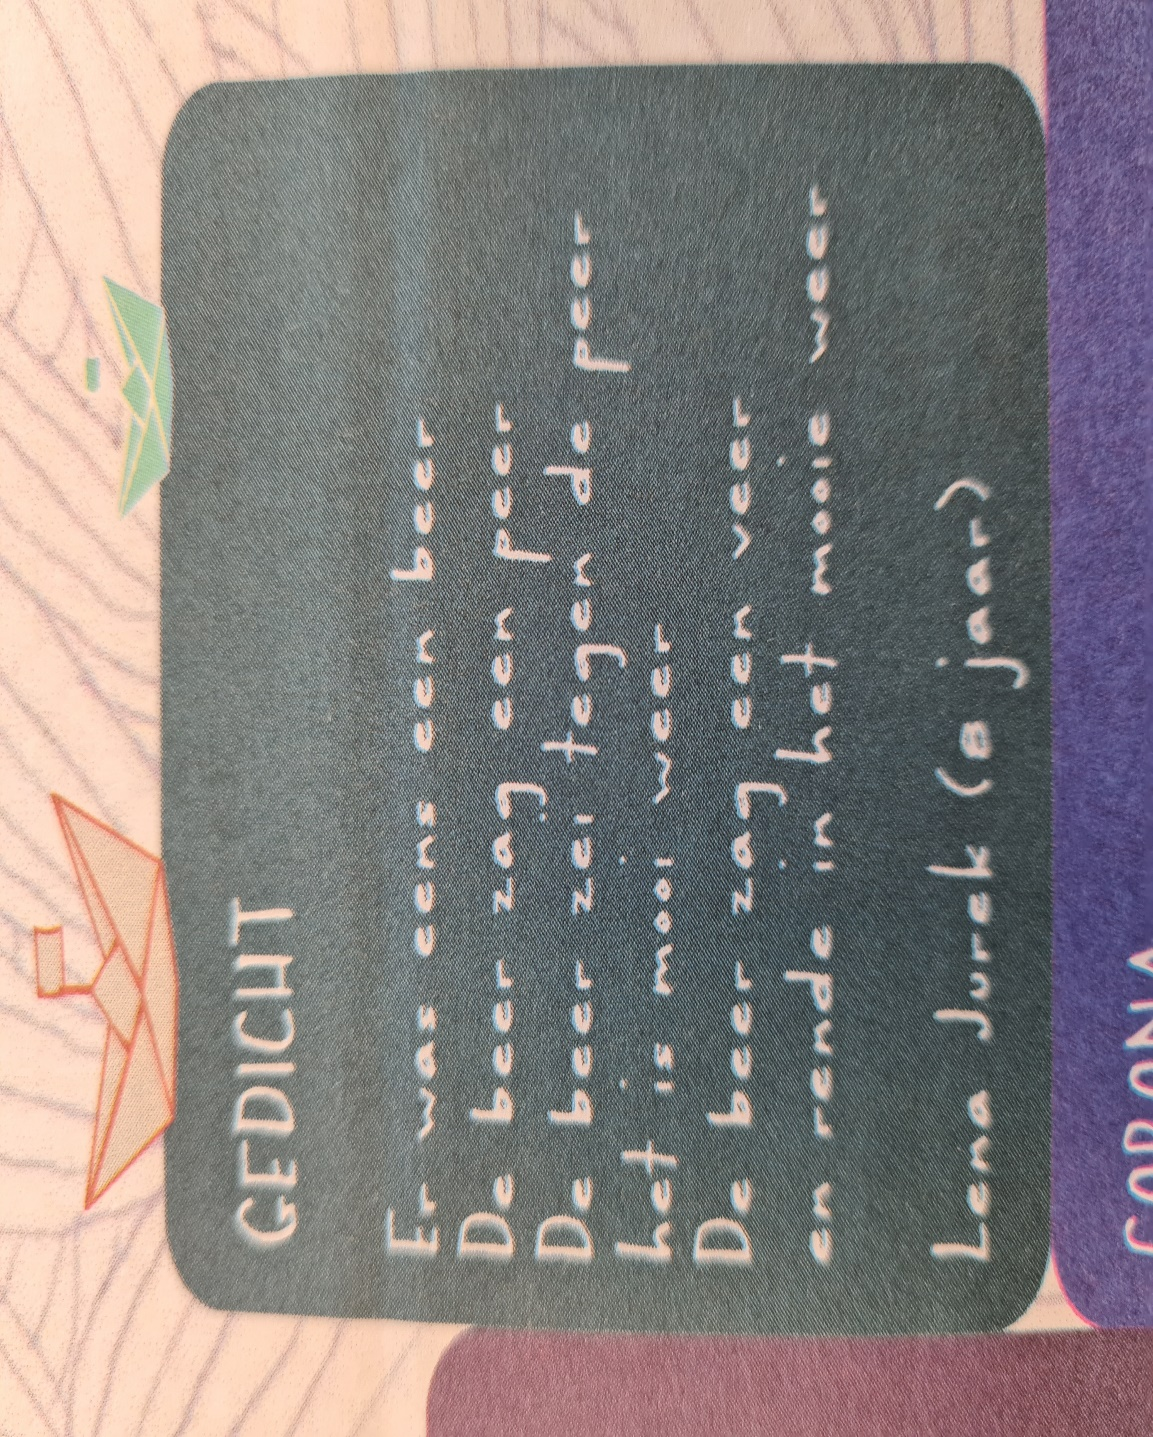 GEDICHT
Er was eens een beer
De beer zag een peer
De beer zei tegen de peer
het is mooi weer
De beer zag een veer
en rende in het mooie weer
Lena Jurek (8 jaar)
CORONA